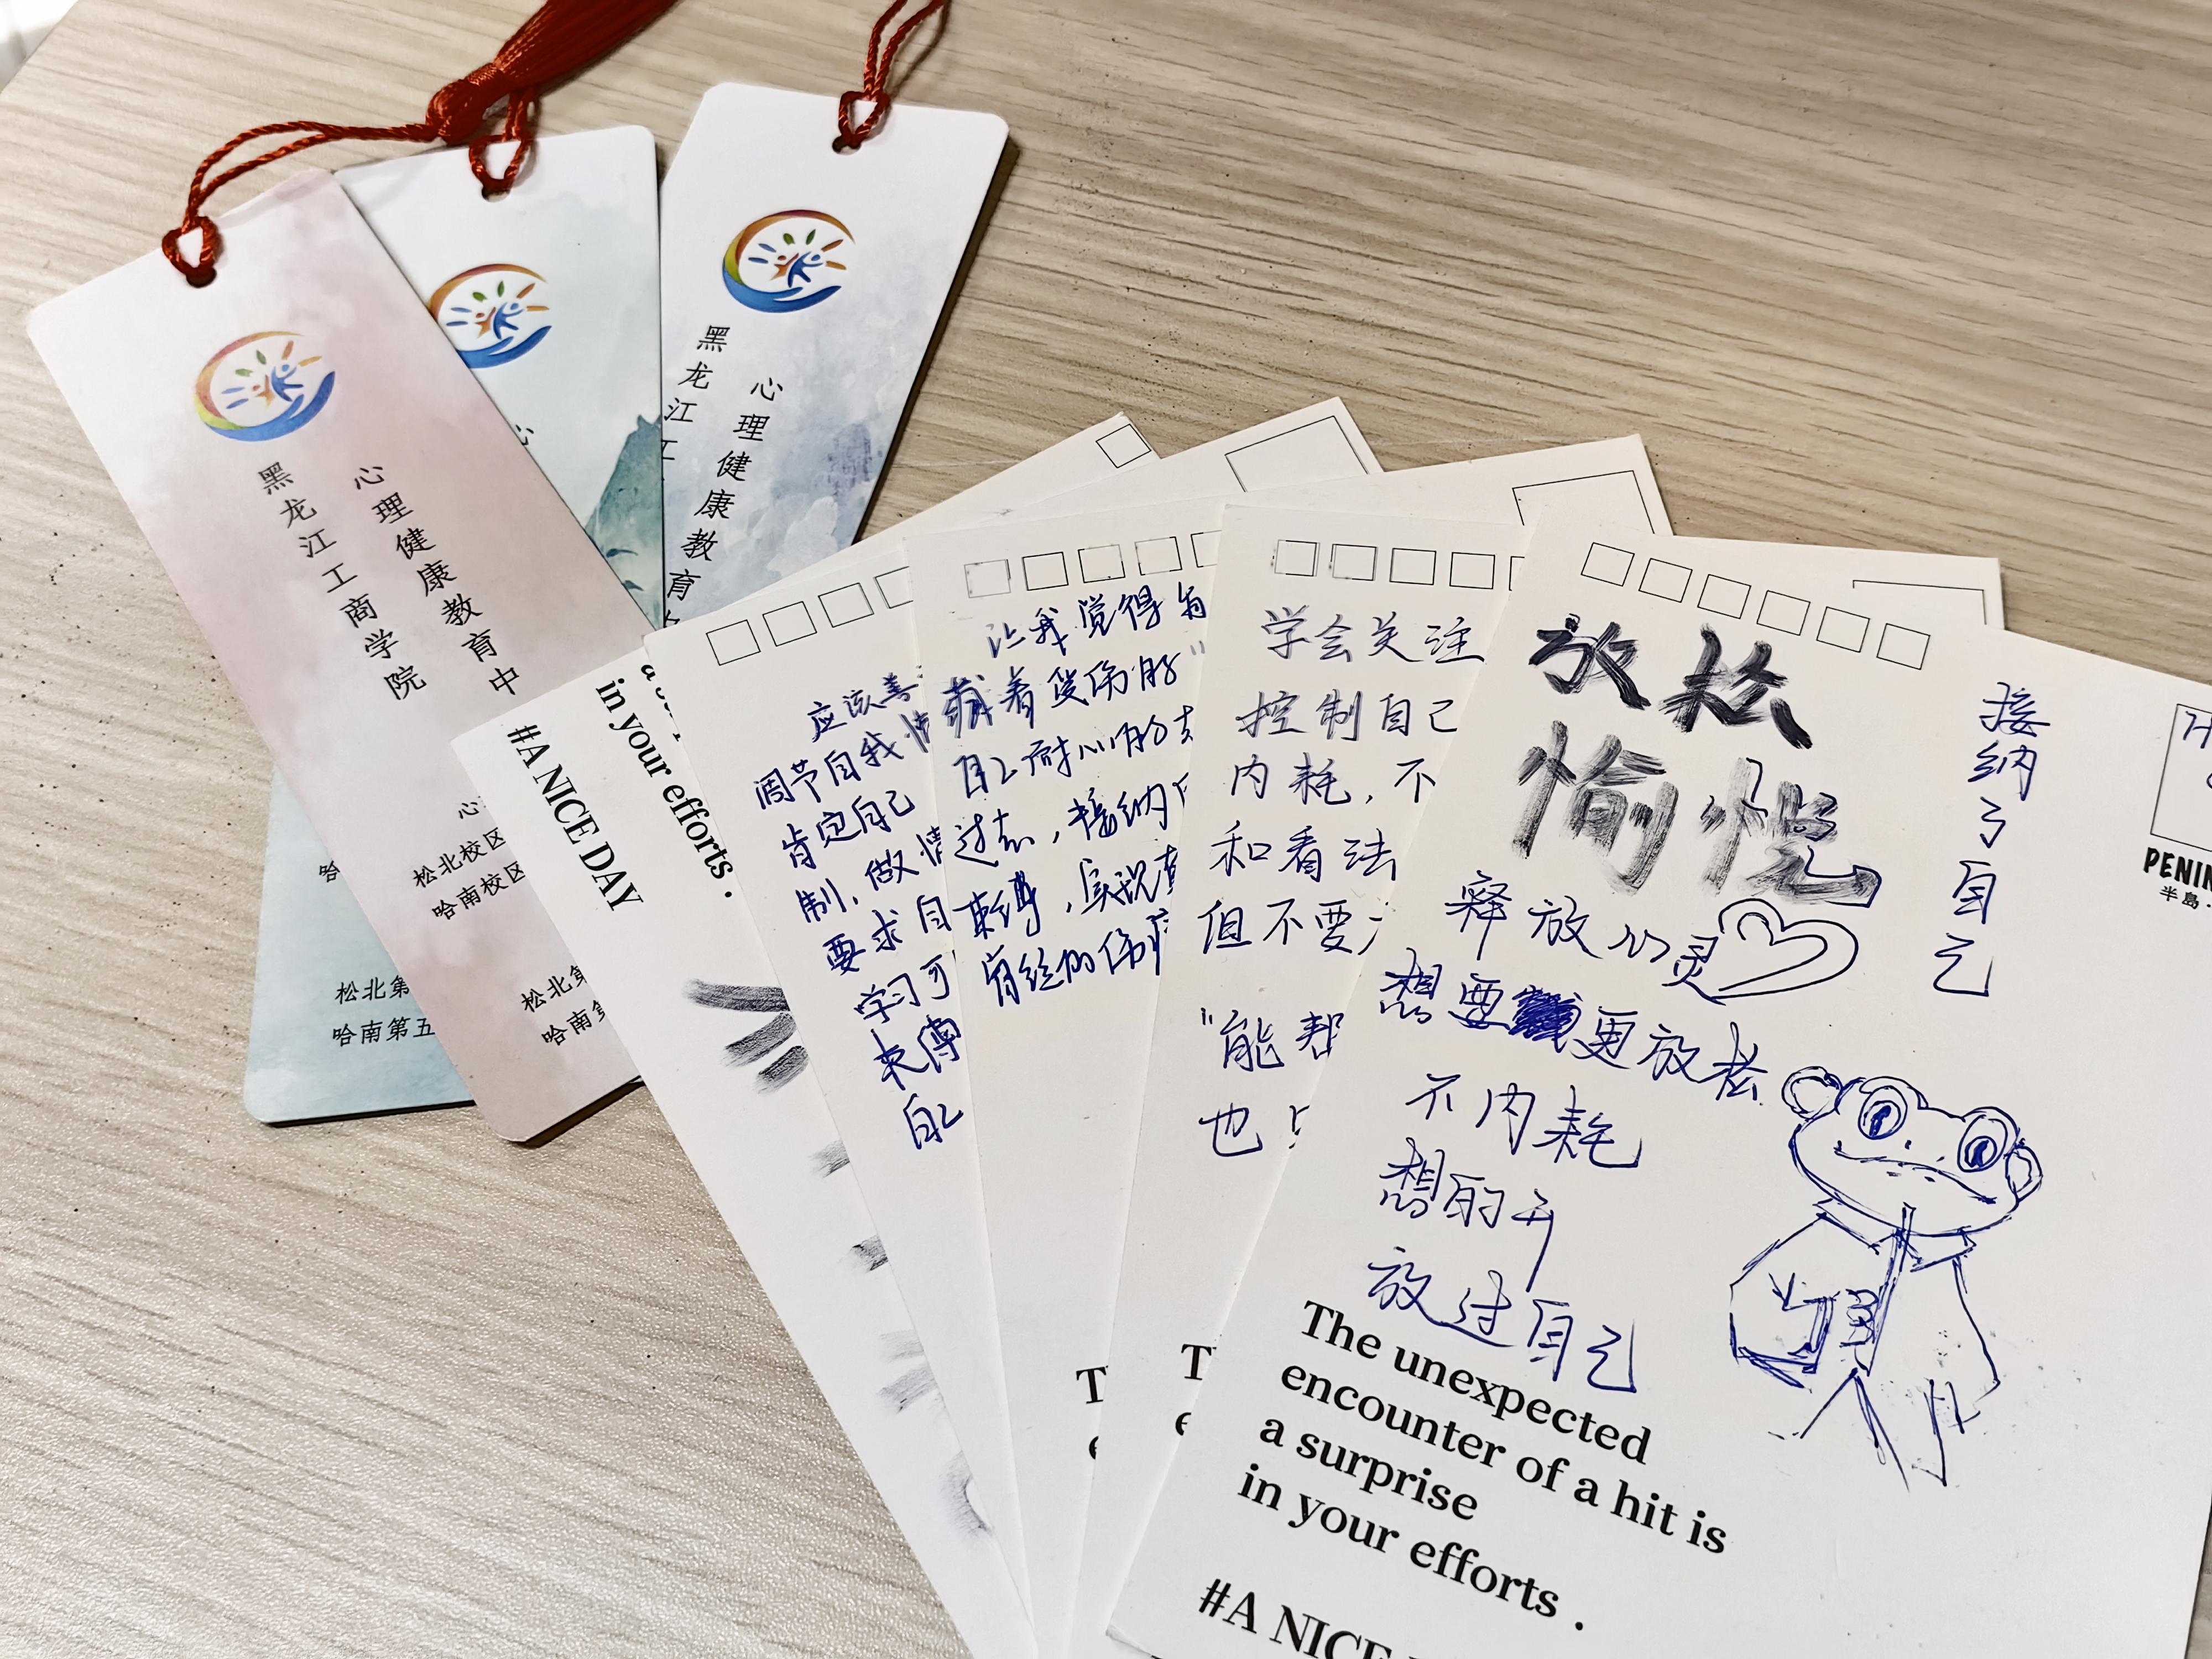 黑龙江工商学院
心理健康教育中
松北校区
哈南校区
松北第
哈南第
心
哈
松北第
哈南第五
黑龙江工
心理健康教育
in your efforts .
#A NICE DAY
应该善
调节自我情
肯定自己
制,做情
要求自
学习可
来
自己
让我觉得有
藏着受伤的"
自己耐心的去
过去,接纳自
束缚,实现
曾经的伤痕
学会关注
控制自己
内耗,不
和看法
但不要
"能帮
也只
放松
愉悦
释放心灵
想要更放松
不内耗
想的开
放过自己
接纳了自己
PENIN
半島
The unexpected
encounter of a hit is
a surprise
in your efforts .
#A NICE